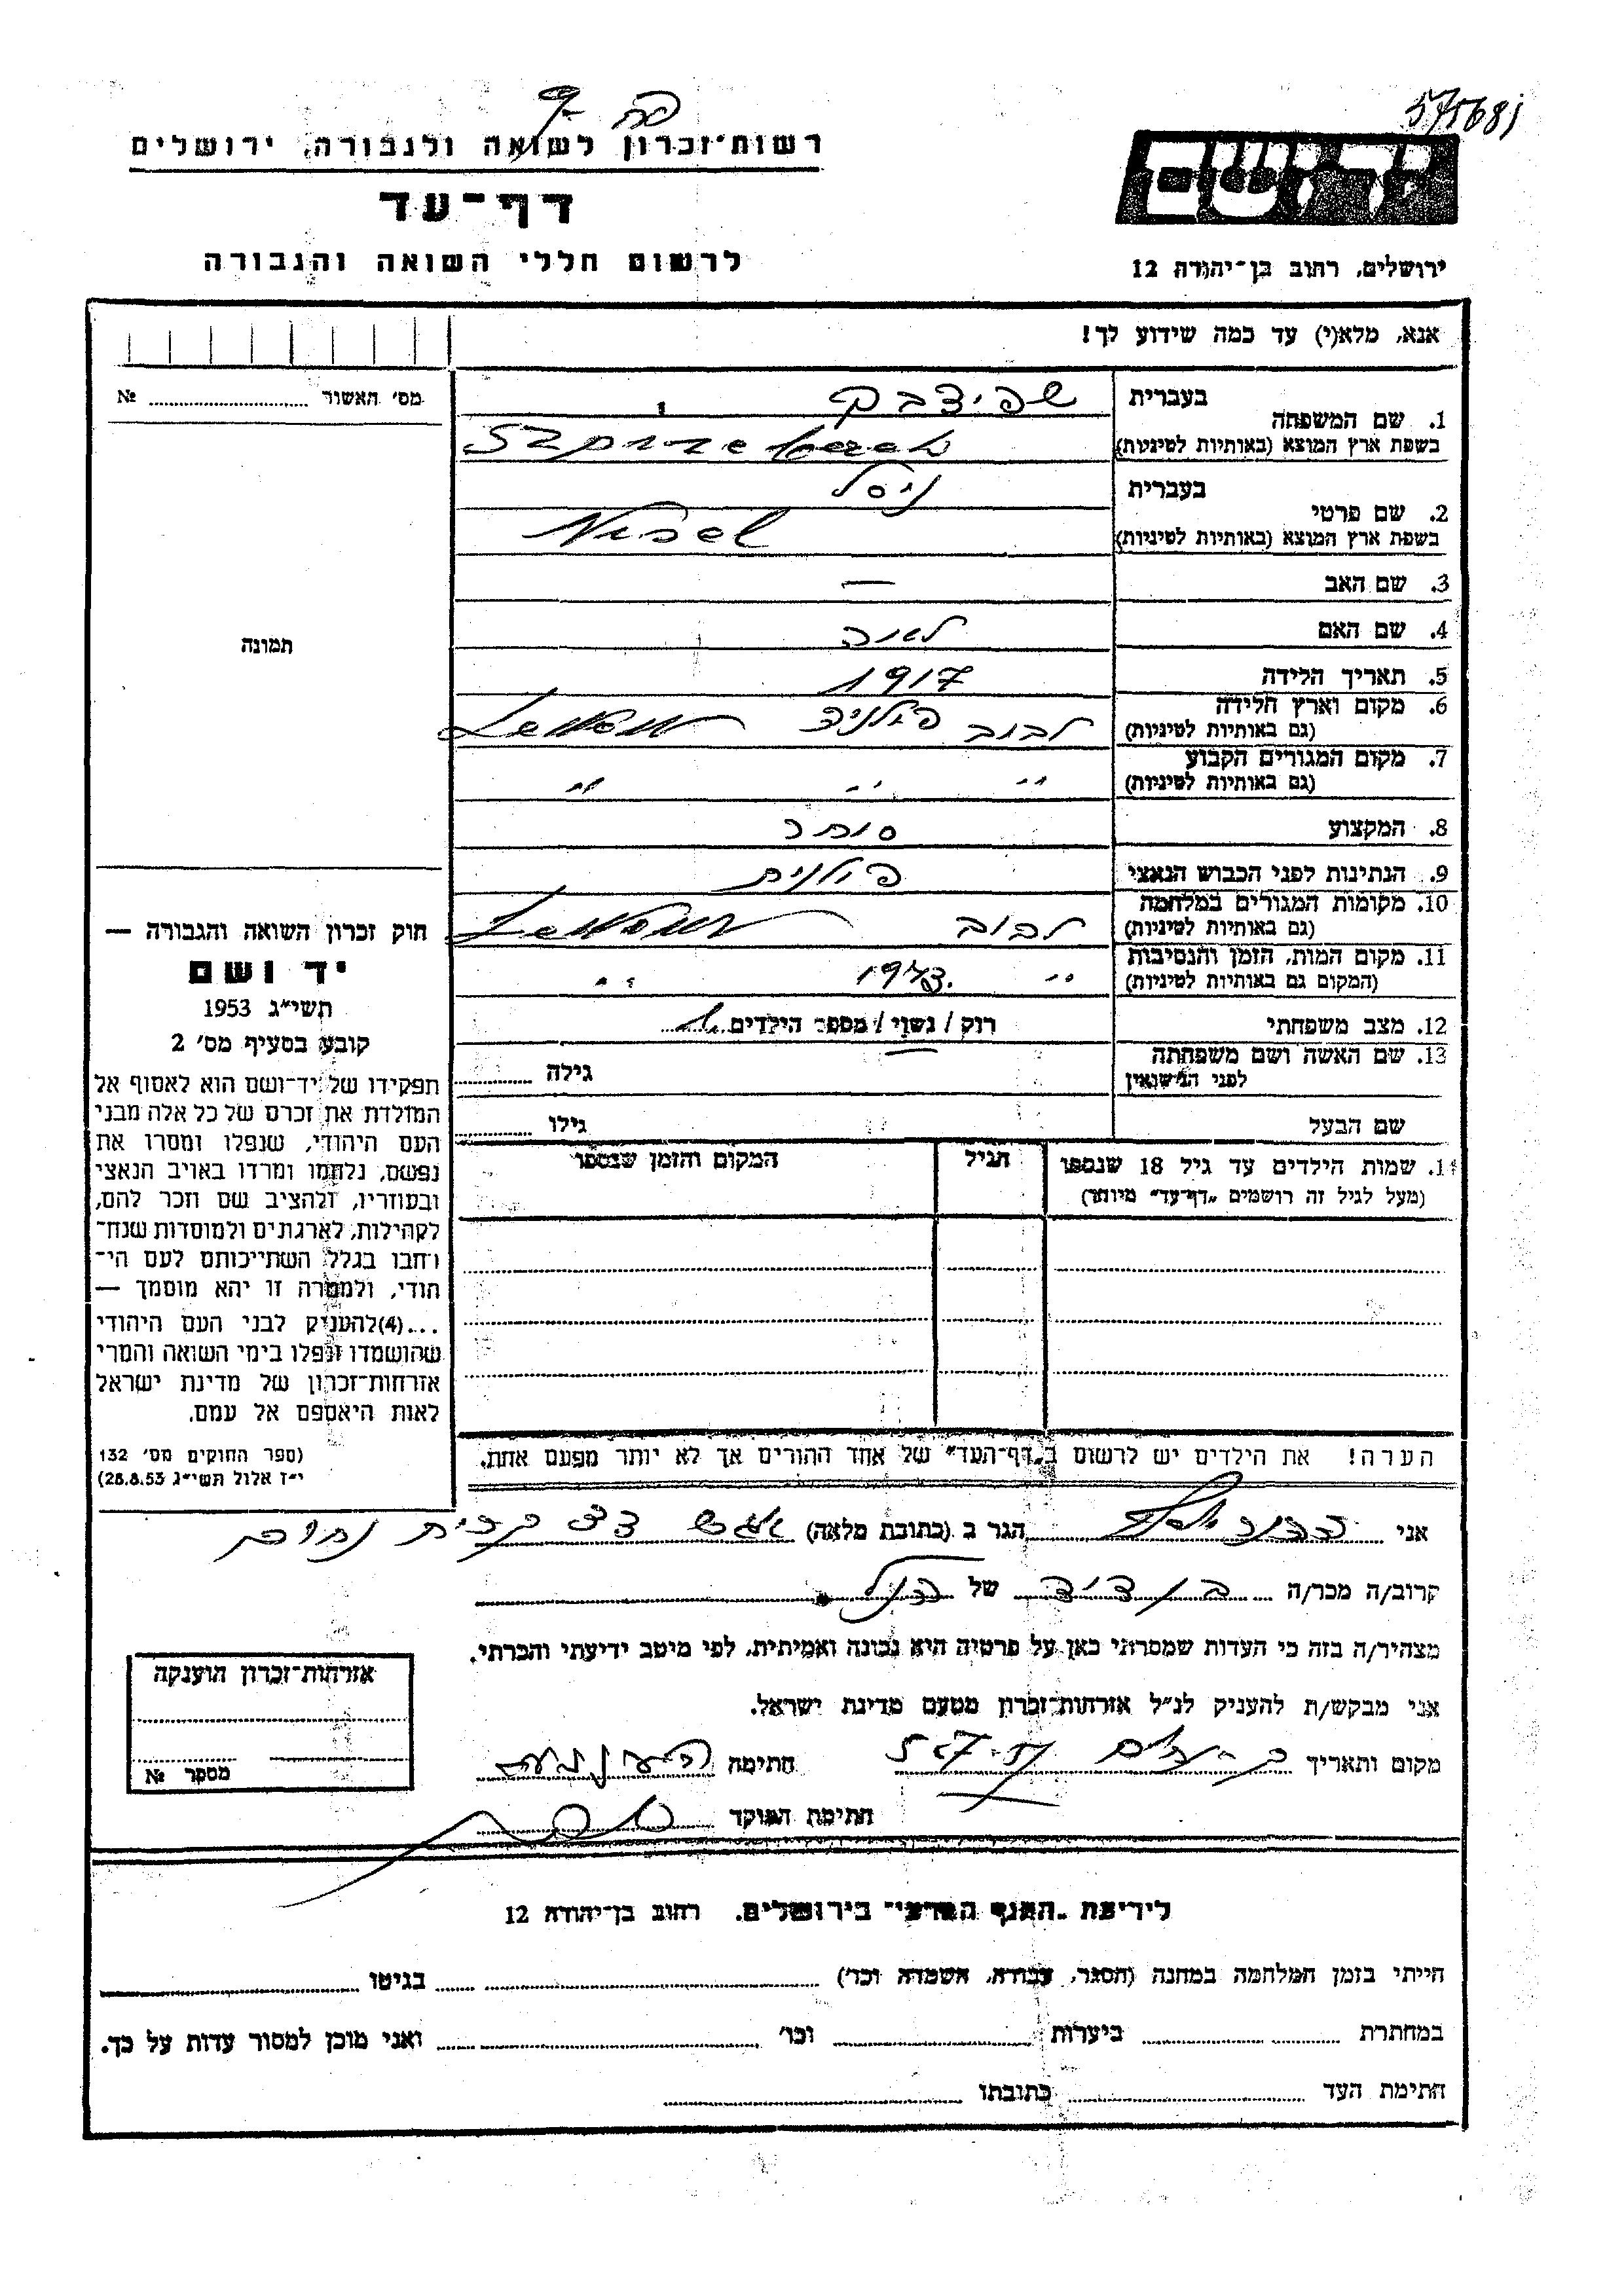 רשות-זכרון לשואה ולגבורה, ירושלים
דף-עד
לרשום חללי השואה והגבורה
יד ושם
ירושלים, רחוב בן-יהודה 12
אנא, מלא(י) עד כמה שידוע לך!
מס' האשור № ........
תמונה
1. שם המשפחה
בעברית
בשפת ארץ המוצא (באותיות לטיניות)
2. שם פרטי
בעברית ניסל
בשפת ארץ המוצא (באותיות לטיניות) Nisel
3. שם האב —
4. שם האם
5. תאריך הלידה 1917
6. מקום וארץ הלידה לבוב
(גם באותיות לטיניות)
7. מקום המגורים הקבוע " " "
(גם באותיות לטיניות)
8. המקצוע סוחר
9. הנתינות לפני הכבוש הנאצי פולנית
10. מקומות המגורים במלחמה לבוב
(גם באותיות לטיניות)
11. מקום המות, הזמן והנסיבות " 1943 "
(המקום גם באותיות לטיניות)
12. מצב משפחתי רווק / נשוי / מספר הילדים
13. שם האשה ושם משפחתה גילה
לפני הנישואין
שם הבעל גילו
14. שמות הילדים עד גיל 18 שנספו הגיל המקום והזמן שנספו
(מעל לגיל זה רושמים "דף-עד" מיוחד)
הערה! את הילדים יש לרשום ב"דף-העד" של אחד ההורים אך לא יותר מפעם אחת.
חוק זכרון השואה והגבורה —
יד ושם
תשי"ג 1953
קובע בסעיף מס' 2
תפקידו של יד-ושם הוא לאסוף אל
המולדת את זכרם של כל אלה מבני
העם היהודי, שנפלו ומסרו את
נפשם, נלחמו ומרדו באויב הנאצי
ובעוזריו, ולהציב שם וזכר להם,
לקהילות, לארגונים ולמוסדות שנח-
רחבו בגלל השתייכותם לעם הי-
הודי, ולמטרה זו יהא מוסמך —
...(4)להעניק לבני העם היהודי
שהושמדו ונפלו בימי השואה והמרי
אזרחות-זכרון של מדינת ישראל
לאות היאספם אל עמם.
(ספר החוקים מס' 132
י"ז אלול תשי"ג 28.8.53)
אני הגר ב (כתובת מלאה)
קרוב/ה מכר/ה בן דוד של הנ"ל
מצהיר/ה בזה כי העדות שמסרתי כאן על פרטיה היא נכונה ואמיתית, לפי מיטב ידיעתי והכרתי.
אני מבקש/ת להעניק לנ"ל אזרחות-זכרון מטעם מדינת ישראל.
מקום ותאריך חתימה
חתימת הפוקד
אזרחות-זכרון הוענקה
מספר №
לידיעת "האגף המדעי" בירושלים, רחוב בן-יהודה 12
הייתי בזמן המלחמה במחנה (הסגר, עבודה, השמדה וכו') בגיטו
במחתרת ביערות וכו' ואני מוכן למסור עדות על כך.
חתימת העד כתובתו